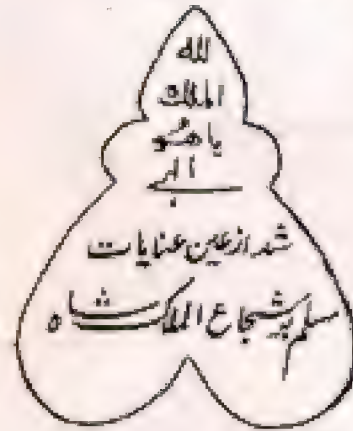 لله
الملک
یا هو
الهی
شد از عین عنایات
مسلم بر شجاع الملک شاه